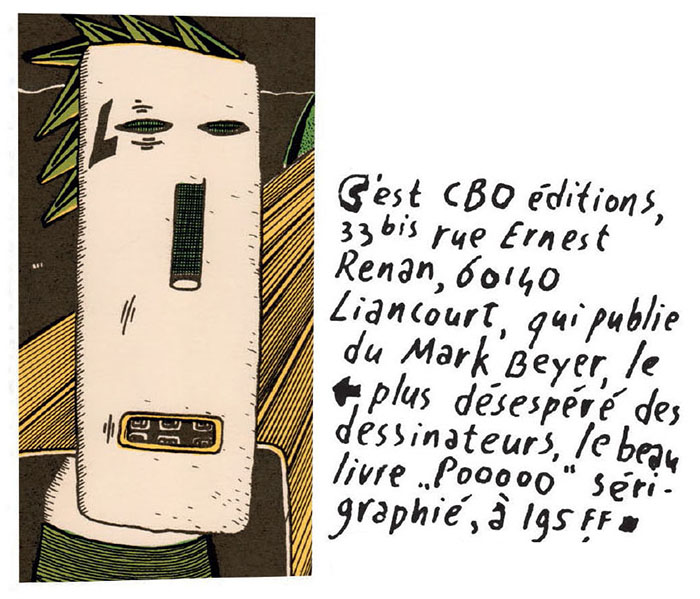 C'est CBO éditions,
33 bis rue Ernest
Renan, 60140
Liancourt, qui publie
du Mark Beyer, le
plus désespéré des
dessinateurs, le beau
livre „Pooooo" séri-
graphié, à 195 FF